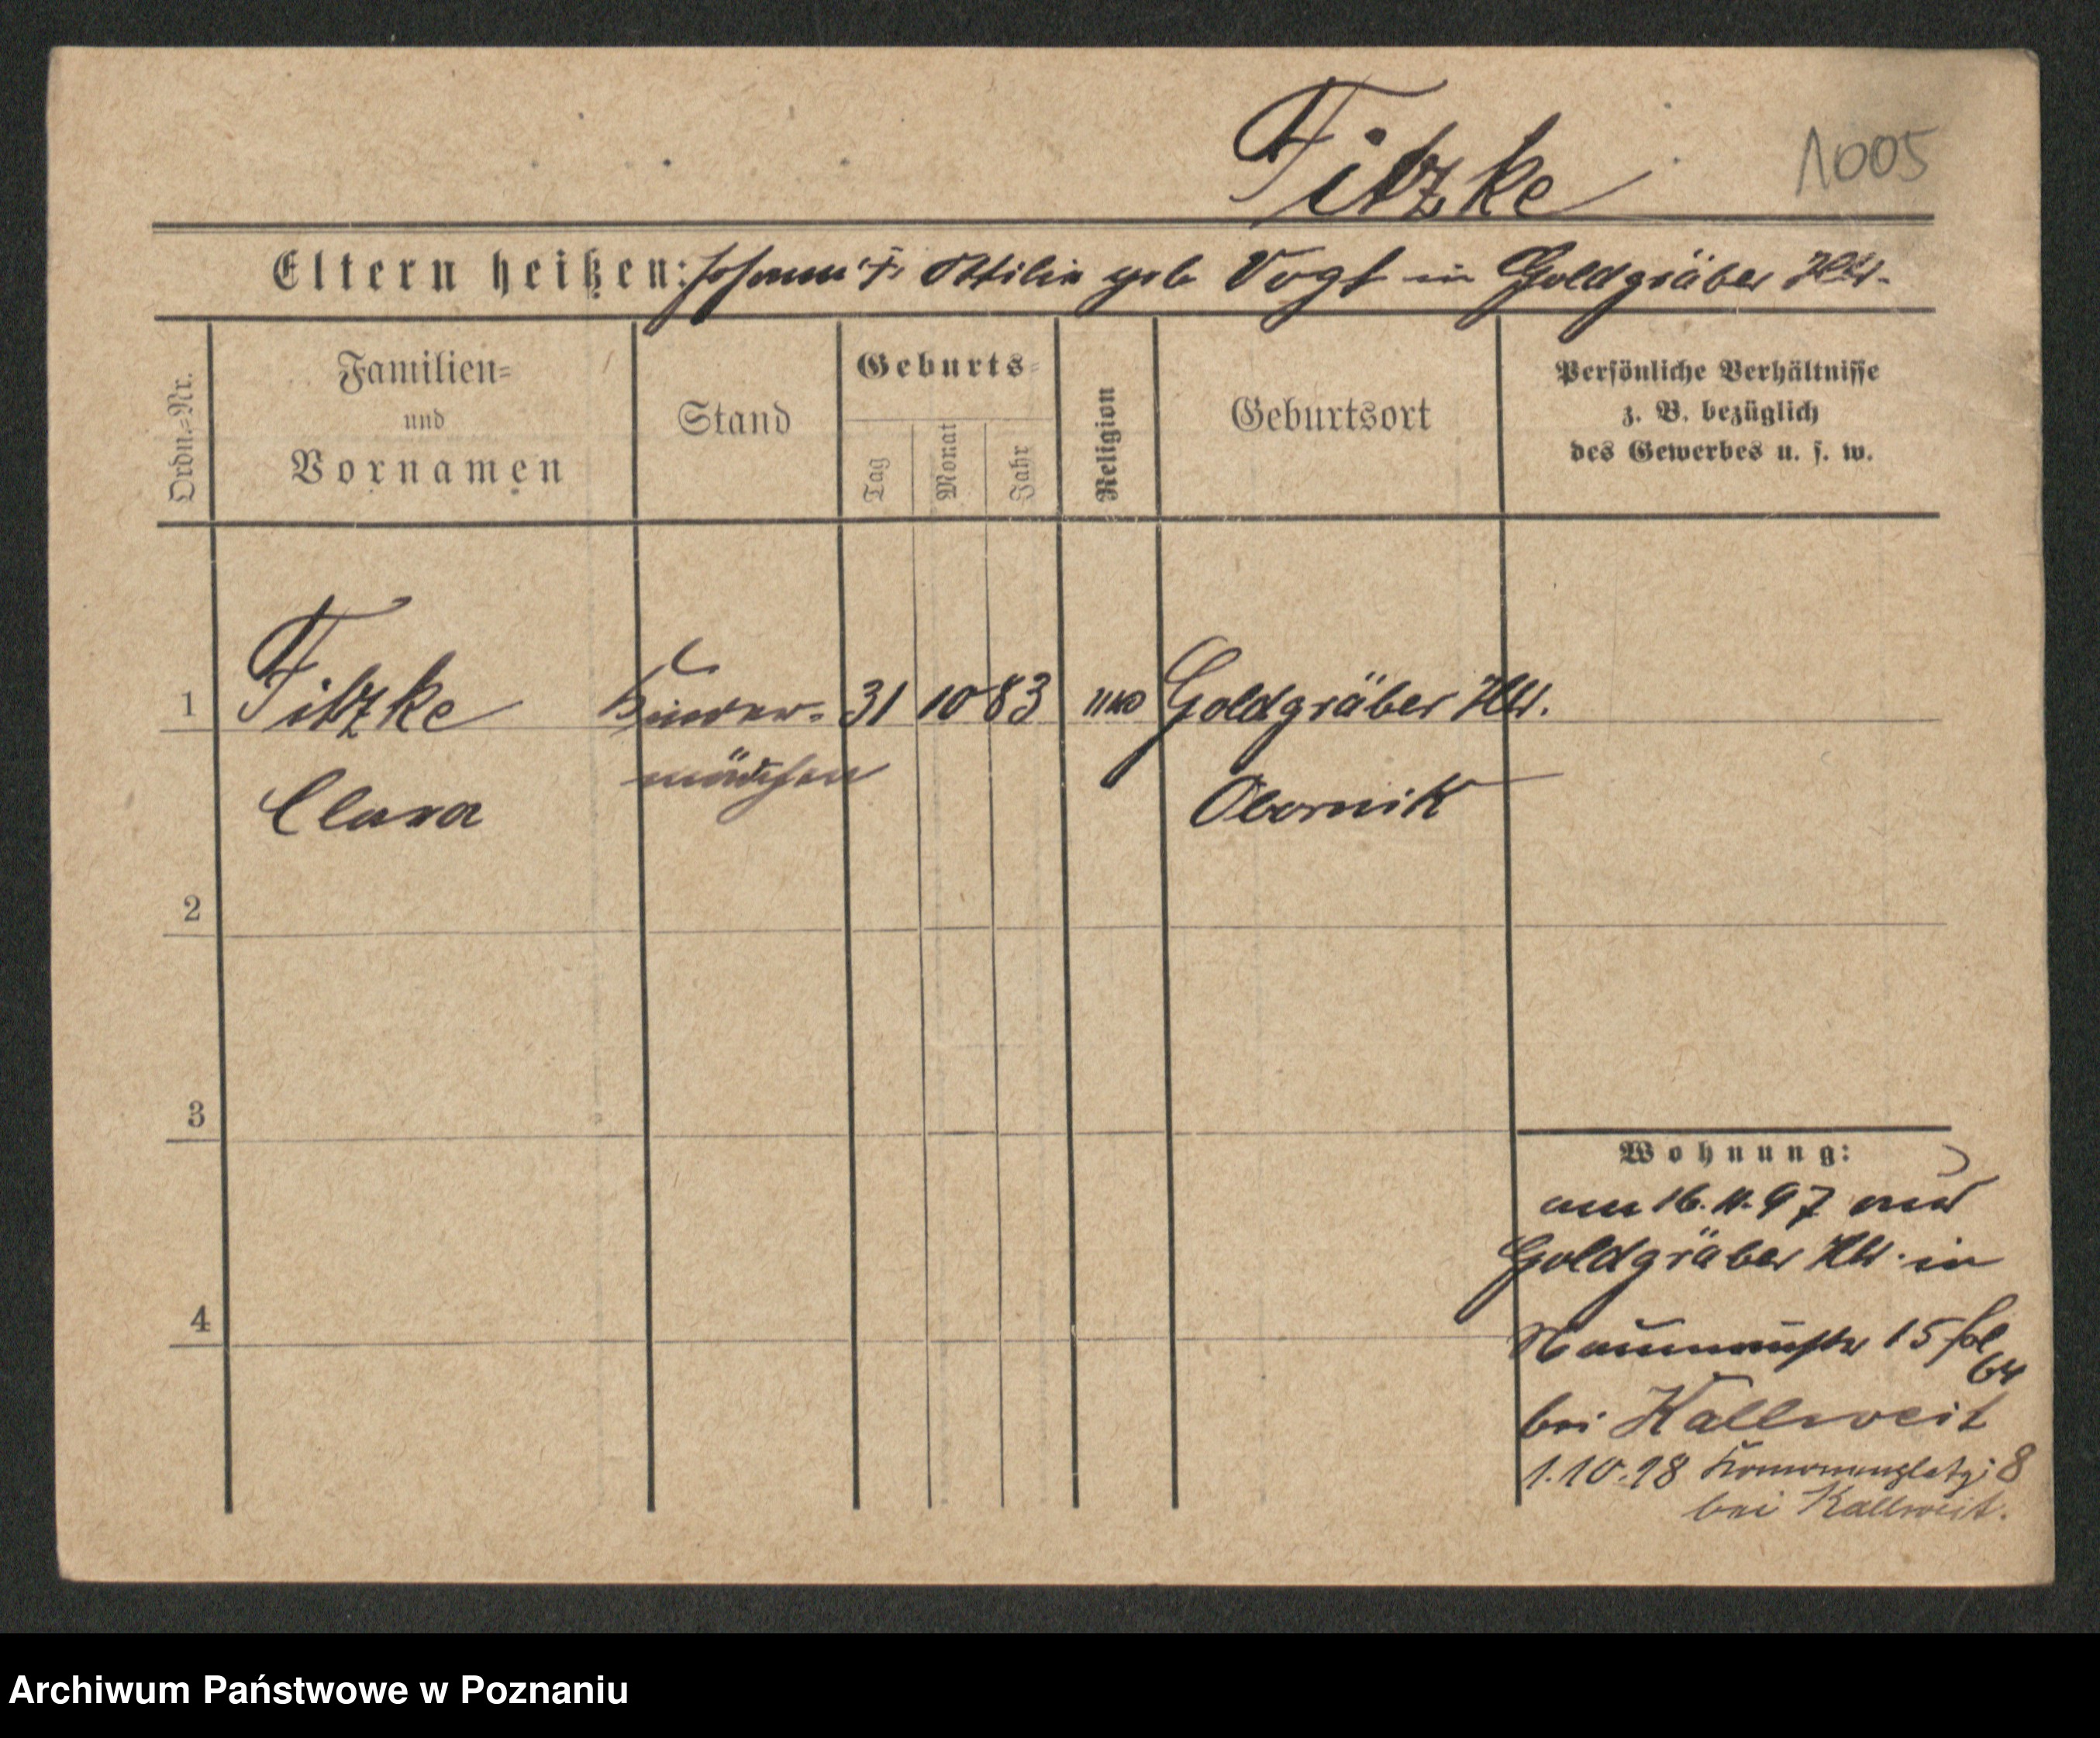 Fitzke
1005
Eltern heißen: Johann † Ottilie geb Vogt in Goldgräber Hld.
Ordn.-Nr.
Familien-
und
Vornamen
Stand
Geburts-
Tag
Monat
Jahr
Religion
Geburtsort
Persönliche Verhältnisse
z. B. bezüglich
des Gewerbes u. s. w.
1 Fitzke Kinder- 31 10 83 Goldgräber Hld.
Clara mädchen Obornik
2
3
4
Wohnung:
am 16. 11. 97 aus
Goldgräber Hld. in
Naumannstr 15 fol
64
bei Kallweit
1.10.98 8
bei Kallweit.
Archiwum Państwowe w Poznaniu